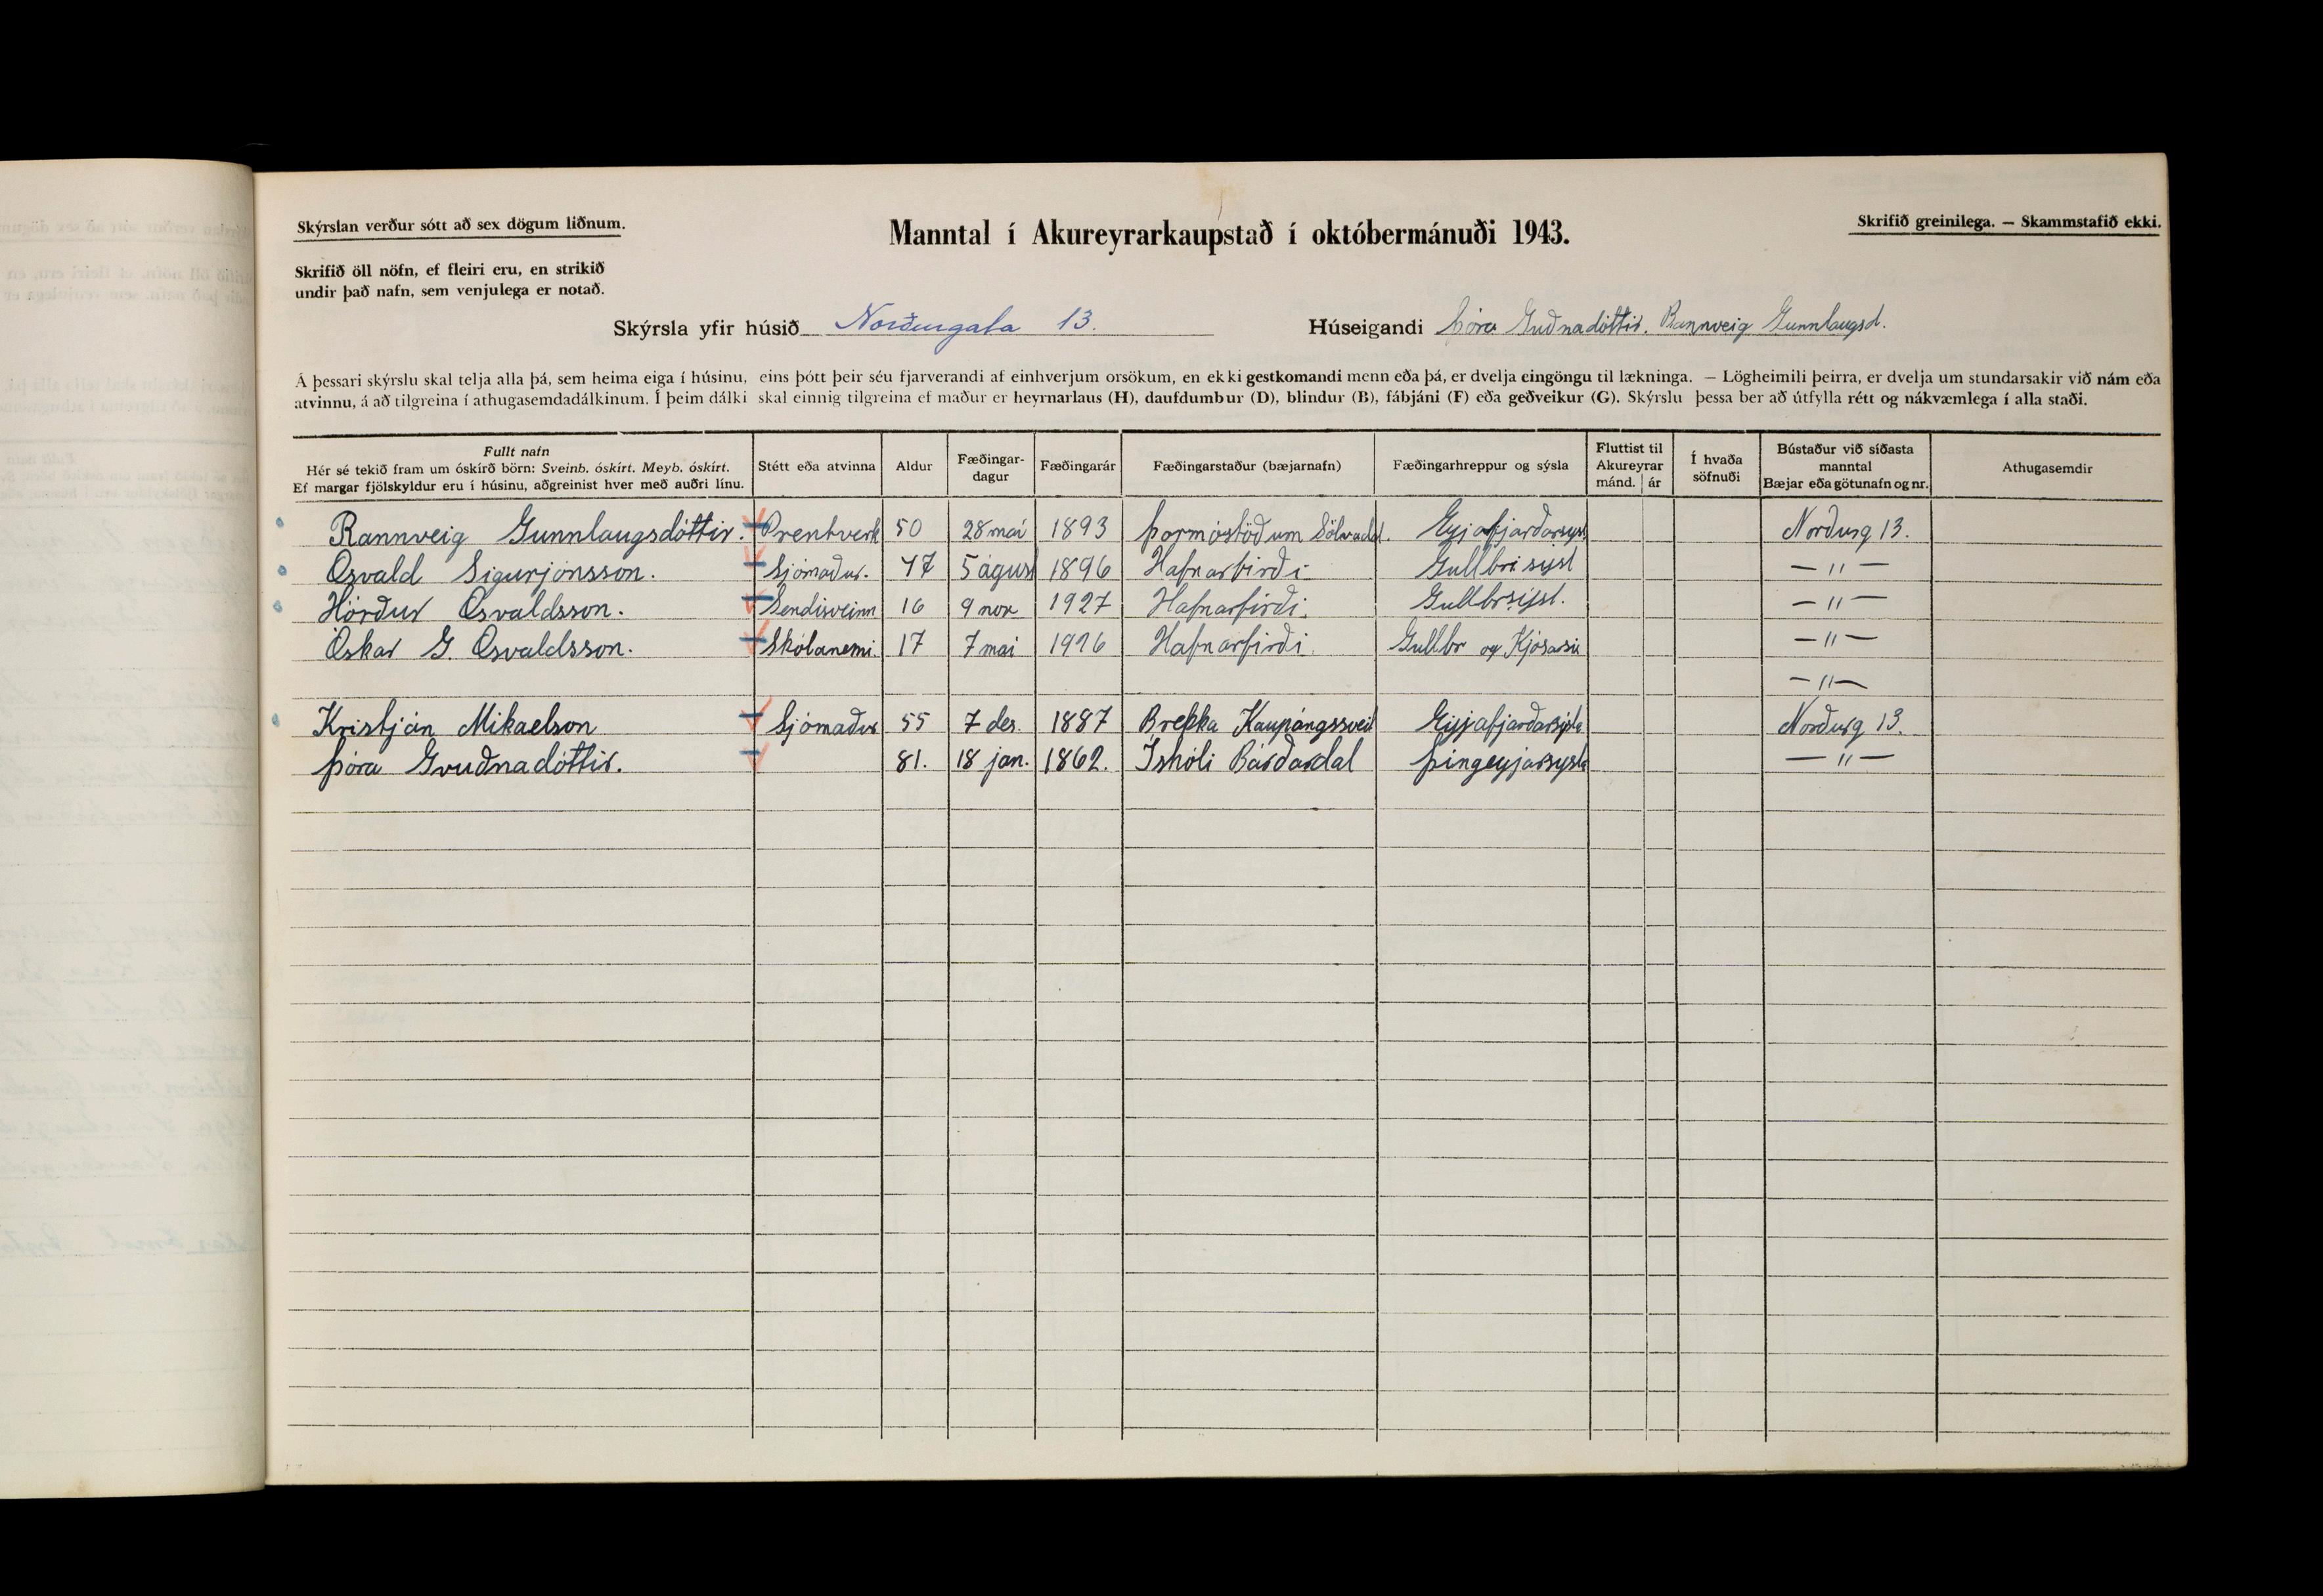 Skýrslan verður sótt að sex dögum liðnum.
Manntal í Akureyrarkaupstað í októbermánuði 1943.
Skrifið greinilega. — Skammstafið ekki.
Skrifið öll nöfn, ef fleiri eru, en strikið
undir það nafn, sem venjulega er notað.
Skýrsla yfir húsið Norðurgata 13.
Húseigandi Þóra Guðnadóttir. Rannveig Gunnlaugsd.
Á þessari skýrslu skal telja alla þá, sem heima eiga í húsinu, eins þótt þeir séu fjarverandi af einhverjum orsökum, en ekki gestkomandi menn eða þá, er dvelja eingöngu til lækninga. — Lögheimili þeirra, er dvelja um stundarsakir við nám eða
atvinnu, á að tilgreina í athugasemdadálkinum. Í þeim dálki skal einnig tilgreina ef maður er heyrnarlaus (H), daufdumbur (D), blindur (B), fábjáni (F) eða geðveikur (G). Skýrslu þessa ber að útfylla rétt og nákvæmlega í alla staði.
Fullt nafn
Hér sé tekið fram um óskírð börn: Sveinb. óskírt. Meyb. óskírt.
Ef margar fjölskyldur eru í húsinu, aðgreinist hver með auðri línu.
Stétt eða atvinna
Aldur
Fæðingar-
dagur
Fæðingarár
Fæðingarstaður (bæjarnafn)
Fæðingarhreppur og sýsla
Fluttist til
Akureyrar
mánd. ár
Í hvaða
söfnuði
Bústaður við síðasta
manntal
Bæjar eða götunafn og nr.
Athugasemdir
Rannveig Gunnlaugsdóttir. Prentverk 50 28 maí 1893 Þormóstöðum Sölvadal. Eyjafjarðarsysl Norðurg 13.
Osvald Sigurjónsson. Sjómaður. 47 5 águst 1896 Hafnarfirði Gullbri sysl — " —
Hörður Osvaldsson. Sendisveinn 16 9 nov 1927 Hafnarfirði. Gullbrsysl. — " —
Óskar G. Osvaldsson. Skólanemi. 17 7 mai 1926 Hafnarfirði. Gullbr og Kjósarsi — " —
— " —
Kristján Mikaelson Sjómaður 55 7 des. 1887 Brekka Kaupángssveit Eyjafjarðarsysla Norðurg 13.
Þóra Gvuðnadóttir. 81. 18 jan. 1862. Íshóli Bárðardal Þingeyjarsysla — " —